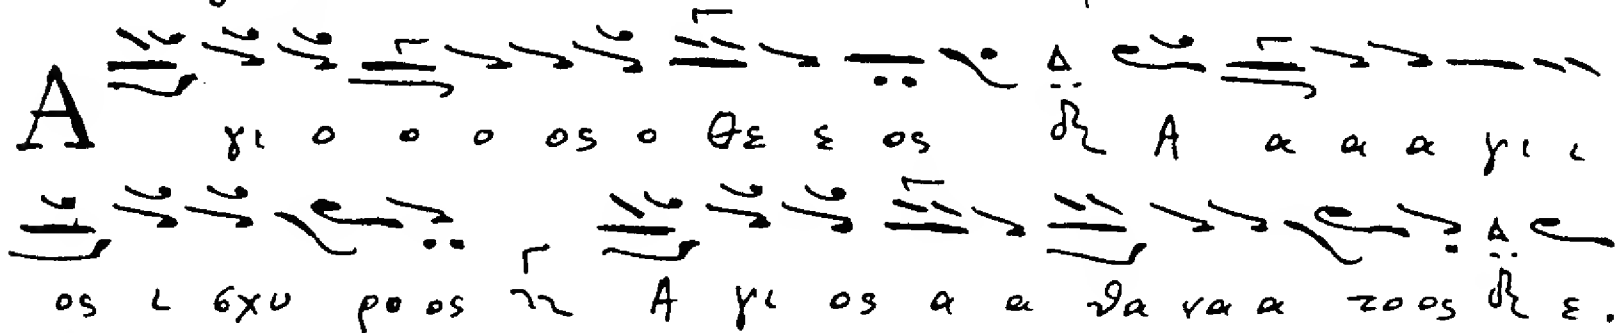 Α γι ο ο ο ος ο Θε ε ος Α α α α γι ι
ος ι σχυ ρο ος Α γι ος α α θα να α το ος ε.